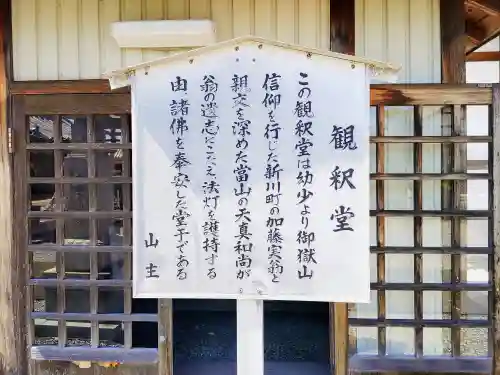 観釈堂
この観釈堂は幼少より御嶽山
信仰を行じた新川町の加藤実翁と
親交を深めた当山の天真和尚が
翁の遺志にこたえ法灯を護持する
由、諸佛を奉安した堂宇である
山主